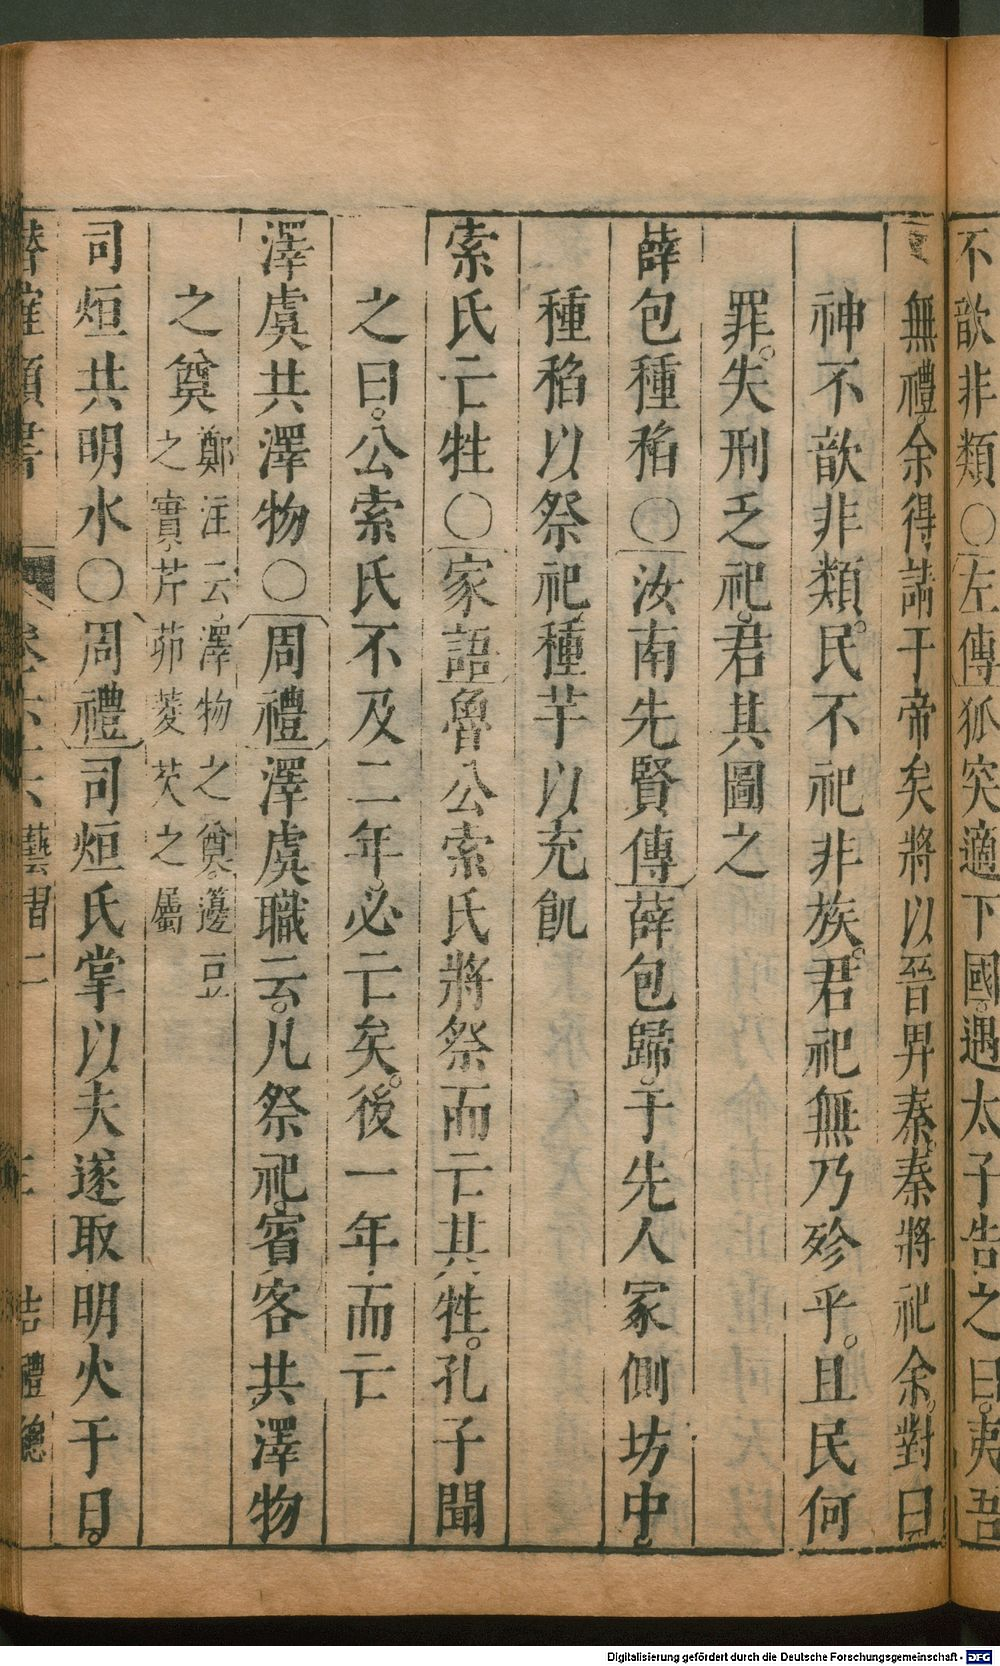 不歆非類○左傳狐突適下國。遇太子告之曰。夷吾
無禮。余得請于帝矣將以晉畀秦。秦將祀余。對曰
神不歆非類。民不祀非族。君祀無乃殄乎。且民何
罪。失刑乏祀。君其圖之
薛包種稻○汝南先賢傳薛包歸。于先人冢側坊中。
種稻以祭祀。種芋以充飢
索氏亡牲○家語魯公索氏將祭而亡其牲。孔子聞
之曰。公索氏不及二年。必亡矣。後一年而亡
澤虞共澤物○周禮澤虞職云。凡祭祀。賓客共澤物
之奠鄭注云。澤物之奠。籩豆
之實。芹茆菱芡之屬
司烜共明水○周禮司烜氏掌以夫遂取明火于日。
卷六十六藝習二 吉禮總
Digitalisierung gefördert durch die Deutsche Forschungsgemeinschaft - DFG